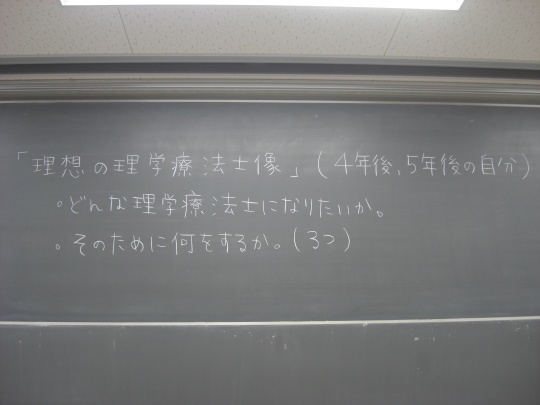 「理想の理学療法士像」(4年後、5年後の自分)
。どんな理学療法士になりたいか。
。そのために何をするか。(3つ)